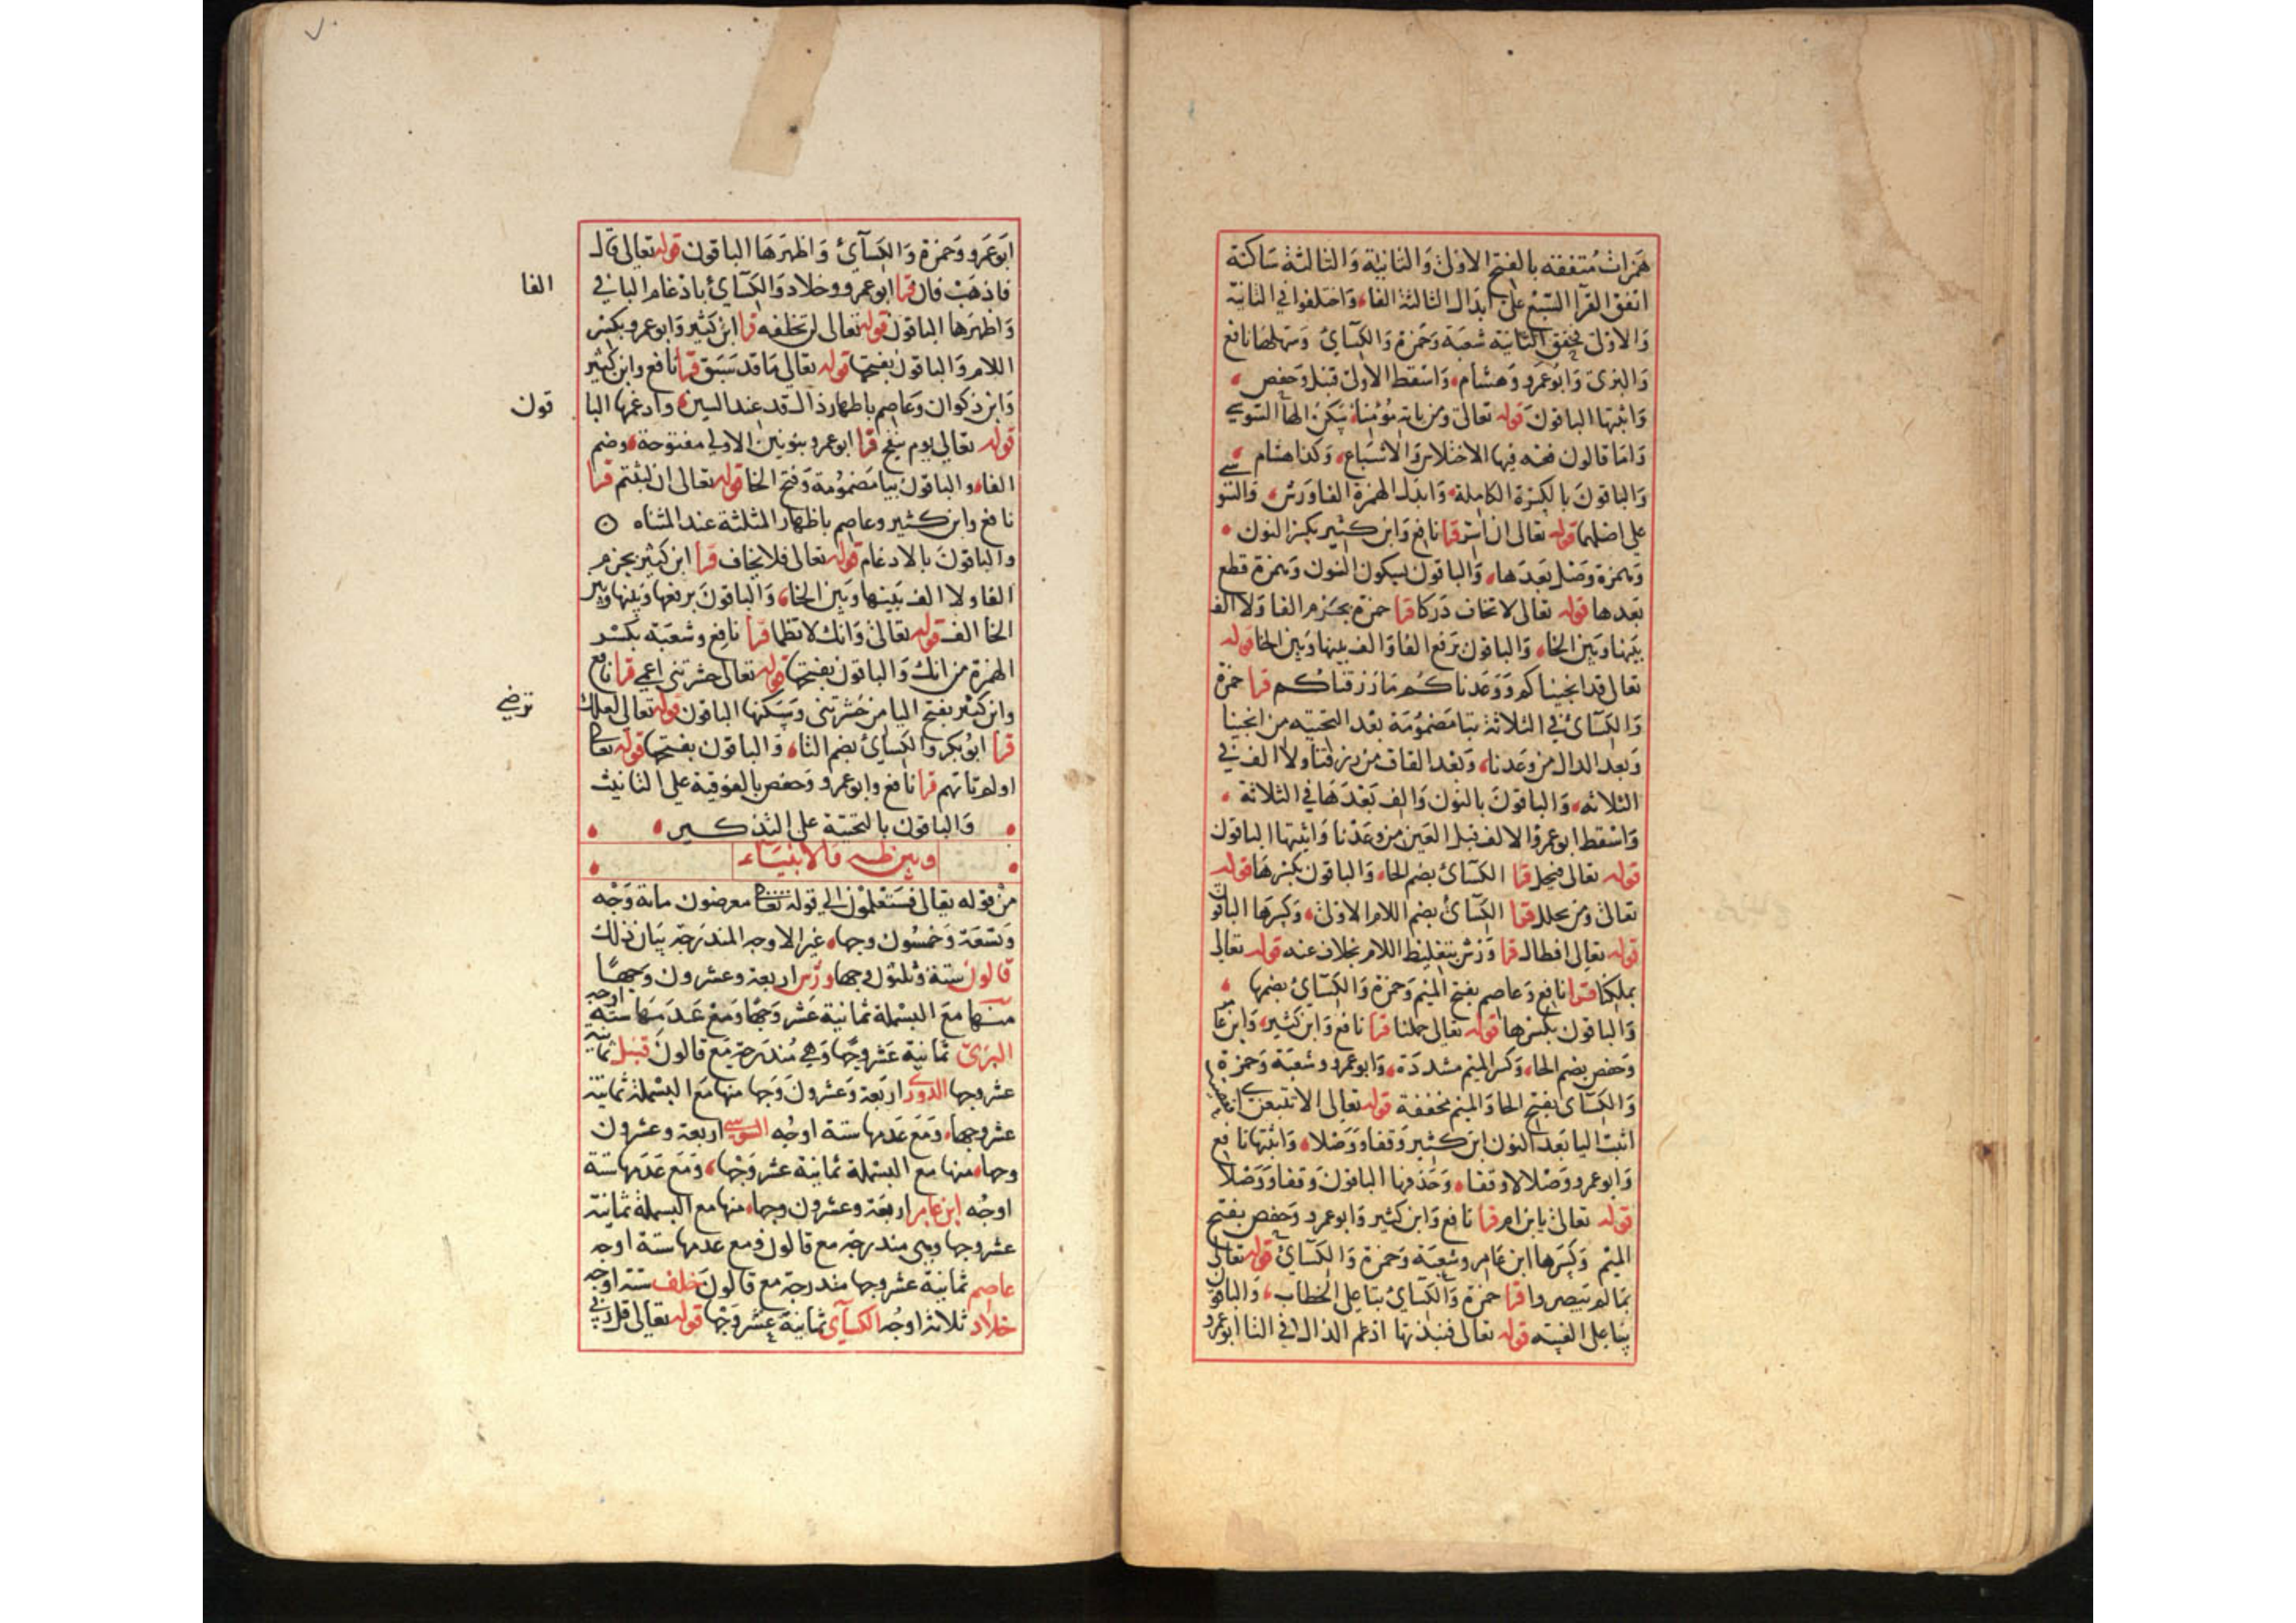 همزات متفقه بالفتح الاولى والثانية والثالثة ساكنة
اتفق القرآ السبع على ابدال الثالثة الفا، واختلفوا في الثانية
والاولى فحقق الثانية شعبة وحمزة والكسآئ وسهلها نافع
والبزى وابو عمرو وهشام، واسقط الاولى قنبل وحفص
واثبتها الباقون قوله تعالى ومن ياته مؤمنا، سكن الهآ السوسي
واما قالون فعنه فيها الاختلاس والاشباع، وكذا هشام
والباقون بالكسرة الكاملة، وابدل الهمزة الفا ورش، والسوسي
على اصلهما قوله تعالى ان اسر قرا نافع وابن كثير بكسر النون
وبهمزة وصل بعدها، والباقون بسكون النون وبهمزة قطع
بعدها قوله تعالى لا تخاف دركا قرا حمزة بجزم الفا ولا الف
بينها وبين الخا، والباقون برفع الفا والف بينها وبين الخا قوله
تعالى قد انجيناكم ووعدناكم ما رزقناكم قرا حمزة
والكسآئ في الثلاثة بتا مضمومة بعد التحتيه من انجينا
وبعد الدال من وعدنا، وبعد القاف من رزقنا ولا الف في
الثلاثه، والباقون بالنون والف بعدها في الثلاثة
واسقط ابو عمرو الالف قبل العين من وعدنا واثبتها الباقون
قوله تعالى فيحل قرا الكسآئ بضم الحا، والباقون بكسرها قوله
تعالى ومن يحلل قرا الكسآئ بضم اللام الاولى، وكسرها الباقون
قوله تعالى افطال قرا ورش بتغليظ اللام بخلاف عنه قوله تعالى
بملكنا قرا نافع وعاصم بفتح الميم وحمزة والكسآئ بضمها
والباقون بكسرها قوله تعالى حملنا قرا نافع وابن كثير، وابن عامر
وحفص بضم الحا، وكسر الميم مشددة، وابو عمرو وشعبة وحمزة
والكسآئ بفتح الحا والميم مخففة قوله تعالى الا تتبعن
اثبت اليا بعد النون ابن كثير وقفا ووصلا، واثبتها نافع
وابو عمرو وصلا لا وقفا، وحذفها الباقون وقفا ووصلا
قوله تعالى يا بن ام قرا نافع وابن كثير وابو عمرو وحفص بفتح
الميم وكسرها ابن عامر وشعبة وحمزة والكسآئ قوله تعالى
بما لم تبصروا قرا حمزة والكسآئ بتا على الخطاب، والباقون
بيا على الغيبه قوله تعالى فنبذتها ادغم الذال في التا ابو عمرو
ابو عمرو وحمزة والكسآئ واظهرها الباقون قوله تعالى قال
فاذهب فان قرا ابو عمرو وخلاد والكسآئ بادغام البا في
الفا
واظهرها الباقون قوله تعالى لن تخلفه قرا ابن كثير وابو عمرو بكسر
اللام والباقون بفتحها قوله تعالى ما قد سبق قرا نافع وابن كثير
وابن ذكوان وعاصم باظهار دال قد عند السين، وادغمها البا
قون
قوله تعالى يوم ينفخ قرا ابو عمرو بنونين الاولى مفتوحة، وضم
الفا، والباقون بيا مضمومة وفتح الخا قوله تعالى ان لبثتم قرا
نافع وابن كثير وعاصم باظهار المثلثة عند المثناه
والباقون بالادغام قوله تعالى فلا يخاف قرا ابن كثير بجزم
الفا ولا الف بينها وبين الخا، والباقون برفعها وبينها وبين
الخا الف قوله تعالى وانك لا تظما قرا نافع وشعبة بكسر
الهمزة من انك والباقون بفتحها قوله تعالى حشرتنى اعمى قرا نافع
وابن كثير بفتح اليا من حشرتنى وسكنها الباقون قوله تعالى لعلك
ترضى
قرا ابو بكر والكسآئ بضم التا، والباقون بفتحها قوله تعالى
اولم تاتهم قرا نافع وابو عمرو وحفص بالفوقية على التانيث
والباقون بالتحتية على التذكير
وبين طه والانبيآء
من قوله تعالى فستعلمون الى قوله تعالى معرضون مائة وجه
وتسعة وخمسون وجها، غير الاوجه المندرجة بيان ذلك
قالون ستة وثلثون وجها ورش اربعة وعشرون وجها
منها مع البسملة ثمانية عشر وجها ومع عدمها ستة اوجه
البزى ثمانية عشر وجها وهي مندرجة مع قالون قنبل ثمانية
عشر وجها الدورى اربعة وعشرون وجها منها مع البسملة ثمانية
عشر وجها، ومع عدمها ستة اوجه السوسي اربعة وعشرون
وجها، منها مع البسملة ثمانية عشر وجها، ومع عدمها ستة
اوجه ابن عامر اربعة وعشرون وجها، منها مع البسملة ثمانية
عشر وجها وهى مندرجة مع قالون ومع عدمها ستة اوجه
عاصم ثمانية عشر وجها مندرجة مع قالون خلف ستة اوجه
خلاد ثلاثة اوجه الكسآئ ثمانية عشر وجها قوله تعالى قل ربي